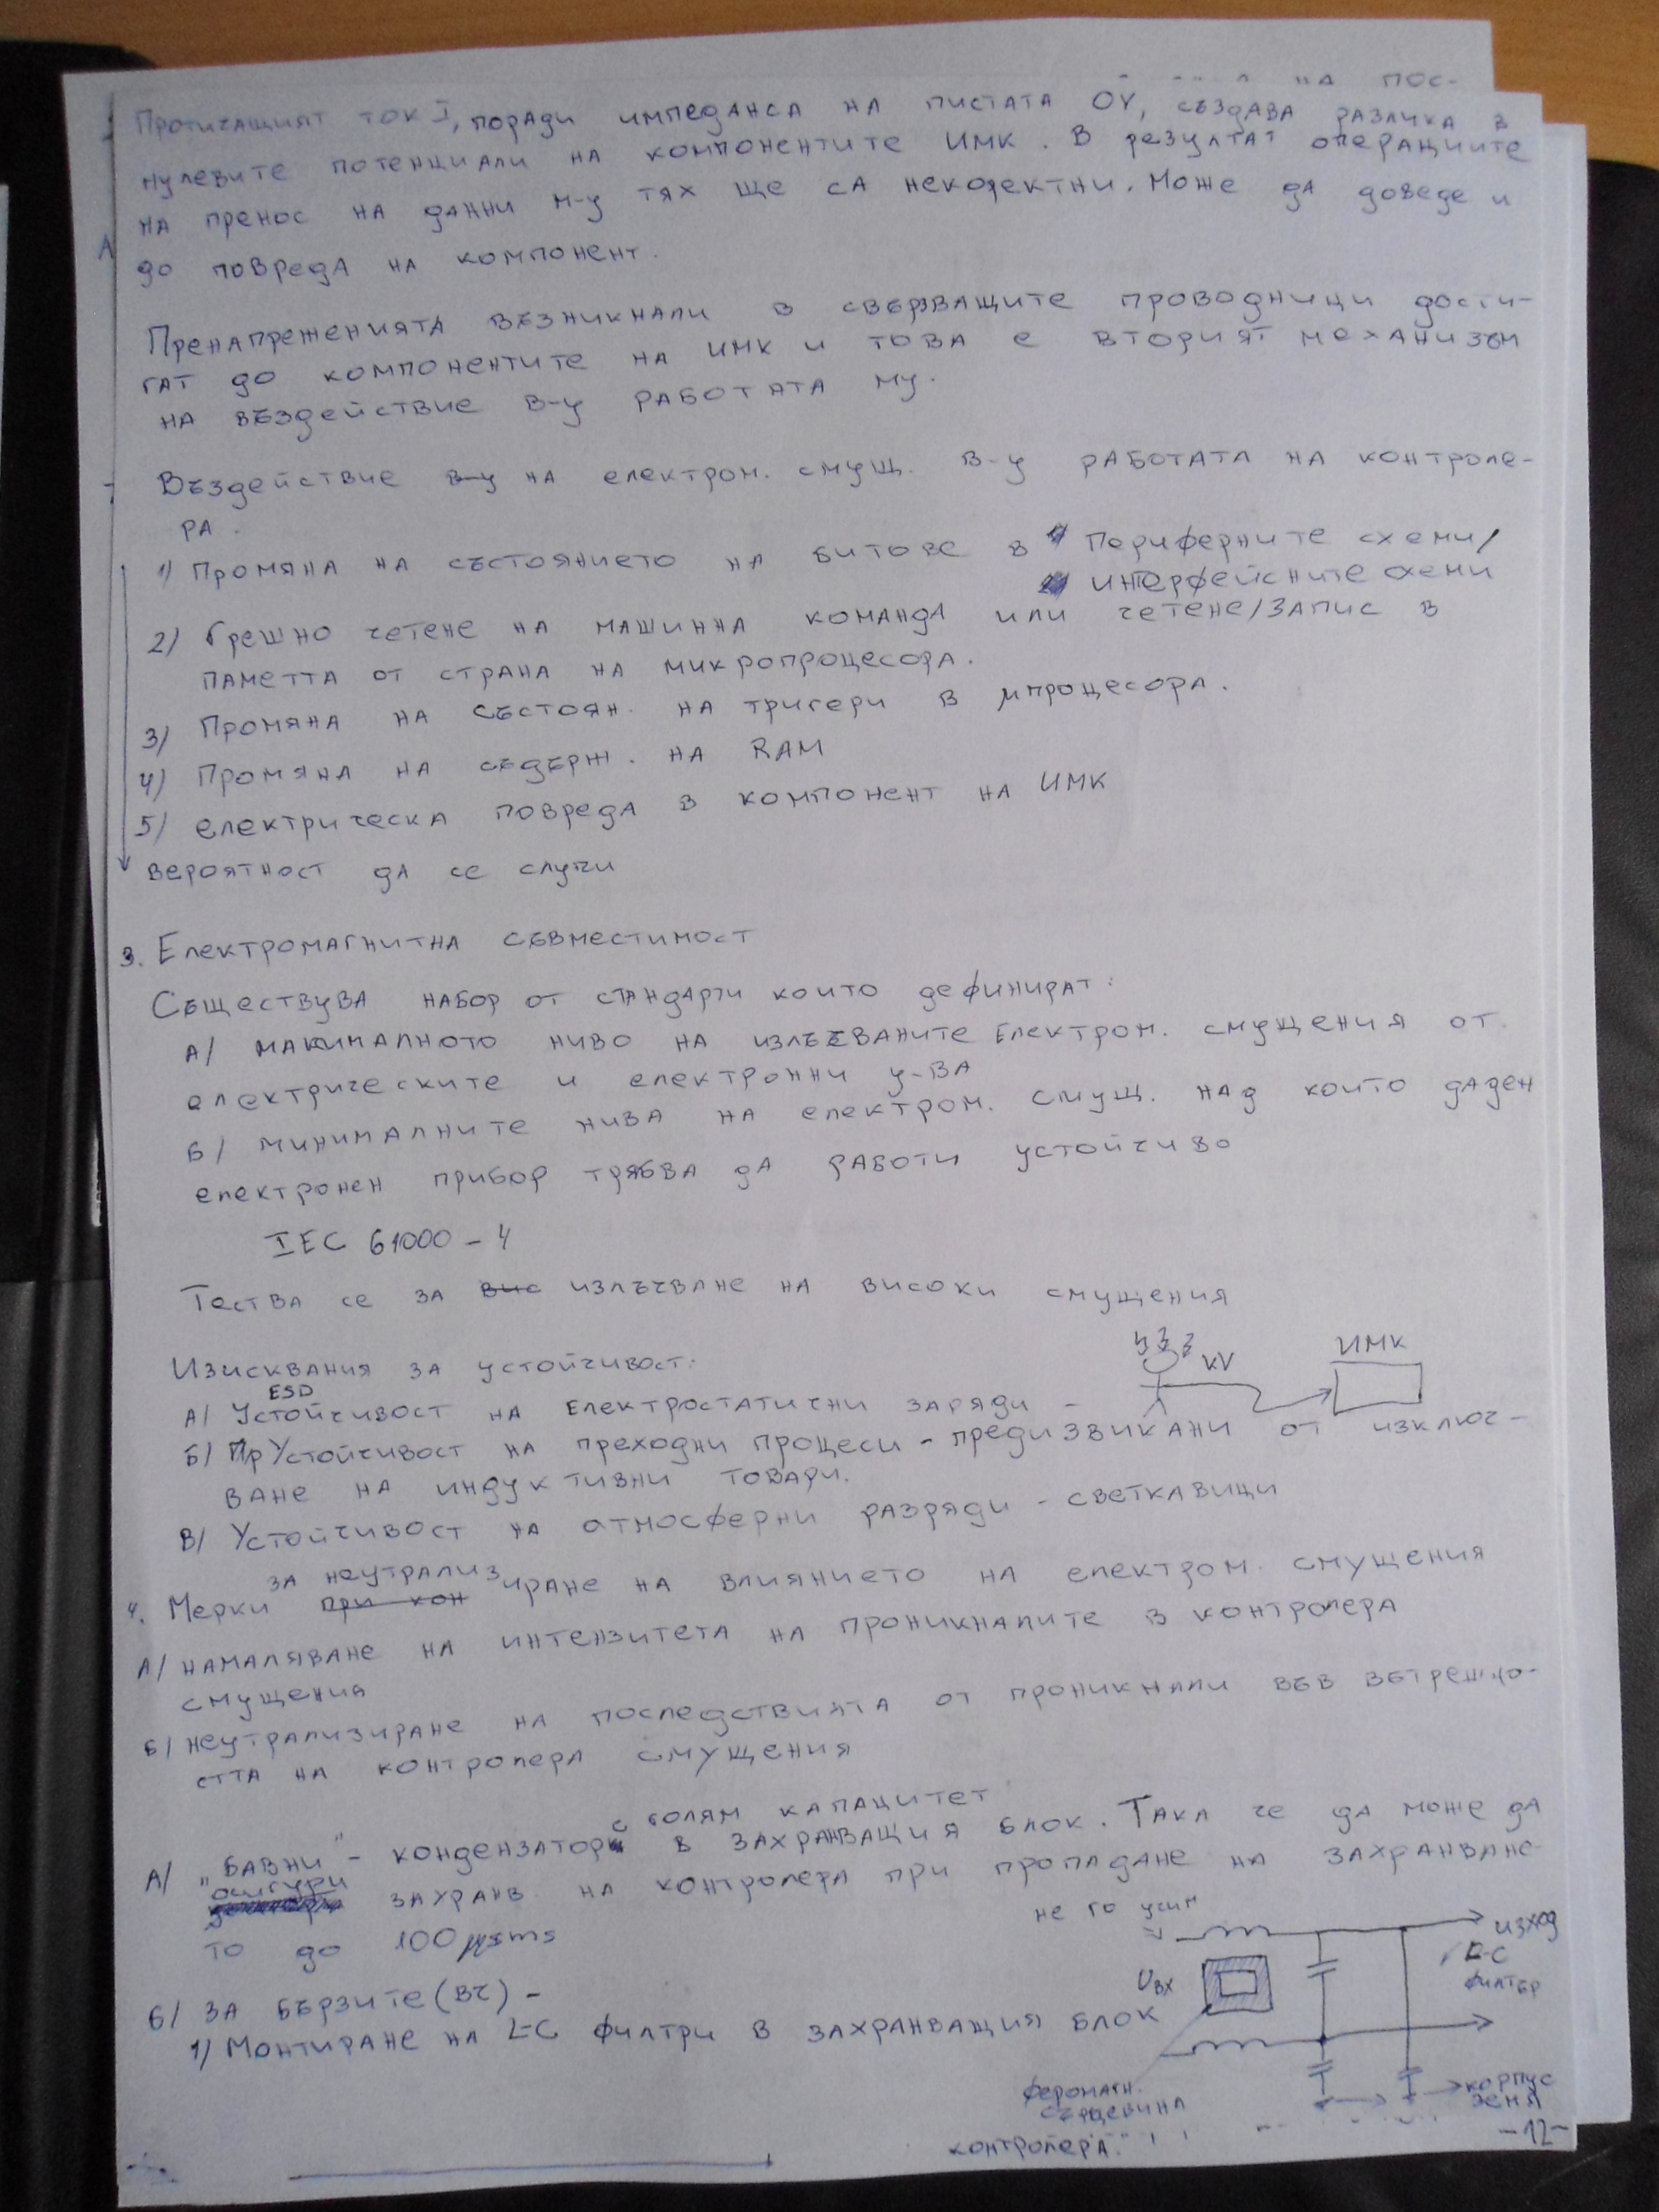 на пос-
Протичащият ток I, поради импеданса на пистата 0V, създава разлика в
нулевите потенциали на компонентите ИМК. В резултат операциите
на пренос на данни м-у тях ще са некоректни. Може да доведе и
до повреда на компонент.
Пренапреженията възникнали в свързващите проводници дости-
гат до компонентите на ИМК и това е вторият механизъм
на въздействие в-у работата му.
Въздействие в-у на електром. смущ. в-у работата на контроле-
ра.
1) Промяна на състоянието на битове в Периферните схеми/
интерфейсните схеми
2) Грешно четене на машинна команда или четене/запис в
паметта от страна на микропроцесора.
3) Промяна на състоян. на тригери в мпроцесора.
4) Промяна на съдърж. на RAM
5) електрическа повреда в компонент на ИМК
вероятност да се случи
3. Електромагнитна съвместимост
Съществува набор от стандарти които дефинират:
А/ макималното ниво на излъчваните електром. смущения от
електрическите и електронни у-ва
Б/ минималните нива на електром. смущ. над които даден
електронен прибор трябва да работи устойчиво
IEC 61000-4
Тества се за вис излъчване на високи смущения
ИМК
kV
Изисквания за устойчивост:
ESD
А/ Устойчивост на Електростатични заряди -
Б/ Пр Устойчивост на преходни процеси - предизвикани от изключ-
ване на индуктивни товари.
В/ Устойчивост на атмосферни разряди - светкавици
за неутрализиране на влиянието на електром. смущения
4. Мерки при кон
А/ намаляване на интензитета на проникналите в контролера
смущения
Б/ неутрализиране на последствията от проникнали във вътрешно-
стта на контролера смущения
с голям капацитет
А/ "Бавни" - кондензатори в захранващия блок. Така че да може да
осигури захранв. на контролера при пропадане на захранване-
то до 100 ms
не го усил
изход
L-C
филтър
Uвх
Б/ За бързите (ВЧ) -
1) Монтиране на L-C филтри в захранващия блок
феромагн.
сърцевина
корпус
земя
-12-
контролера."